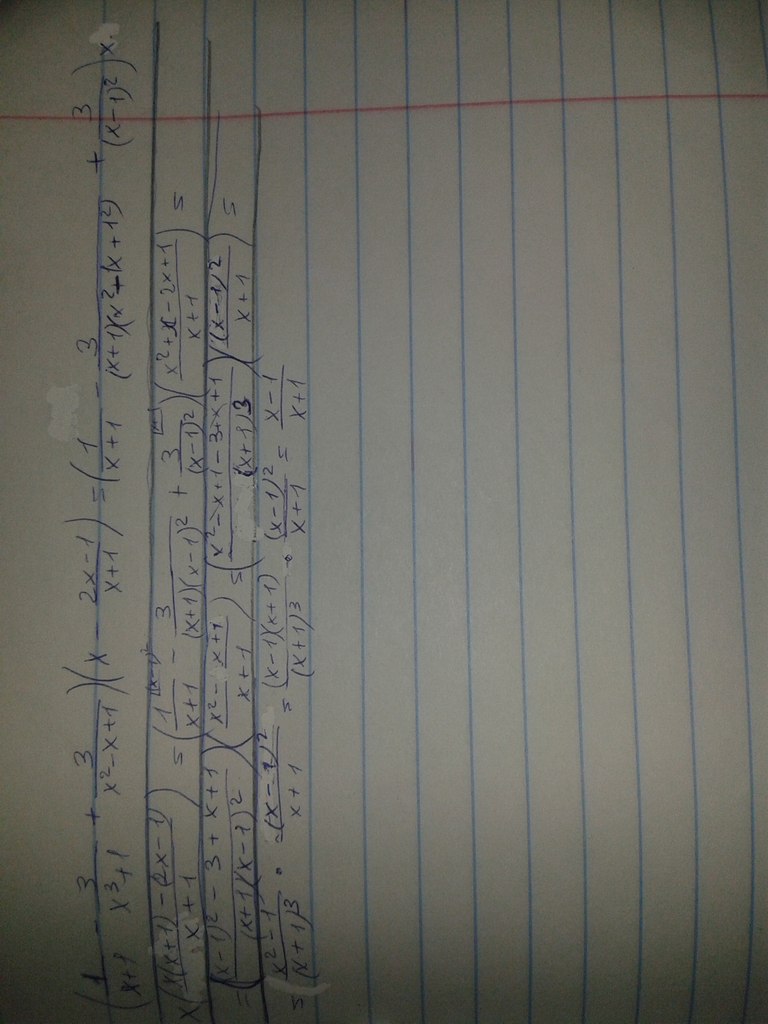 (1/(x+1) - 3/(x³+1) + 3/(x²-x+1))(x - (2x-1)/(x+1)) = (1/(x+1) - 3/((x+1)(x²+1x+1²)) + 3/(x-1)²) x
x((x(x+1)-(2x-1))/(x+1)) = (1/(x+1) - 3/((x+1)(x-1)²) + 3/(x-1)²)((x²+x-2x+1)/(x+1)) =
= (((x-1)²-3+x+1)/((x+1)(x-1)²))((x²-x+1)/(x+1)) = ((x²-x+1-3+x+1)/(x+1)3)((x-1)²/(x+1)) =
= (x²-1)/(x+1)3 · (x-1)²/(x+1) = ((x-1)(x+1))/(x+1)3 · (x-1)²/(x+1) = (x-1)/(x+1)